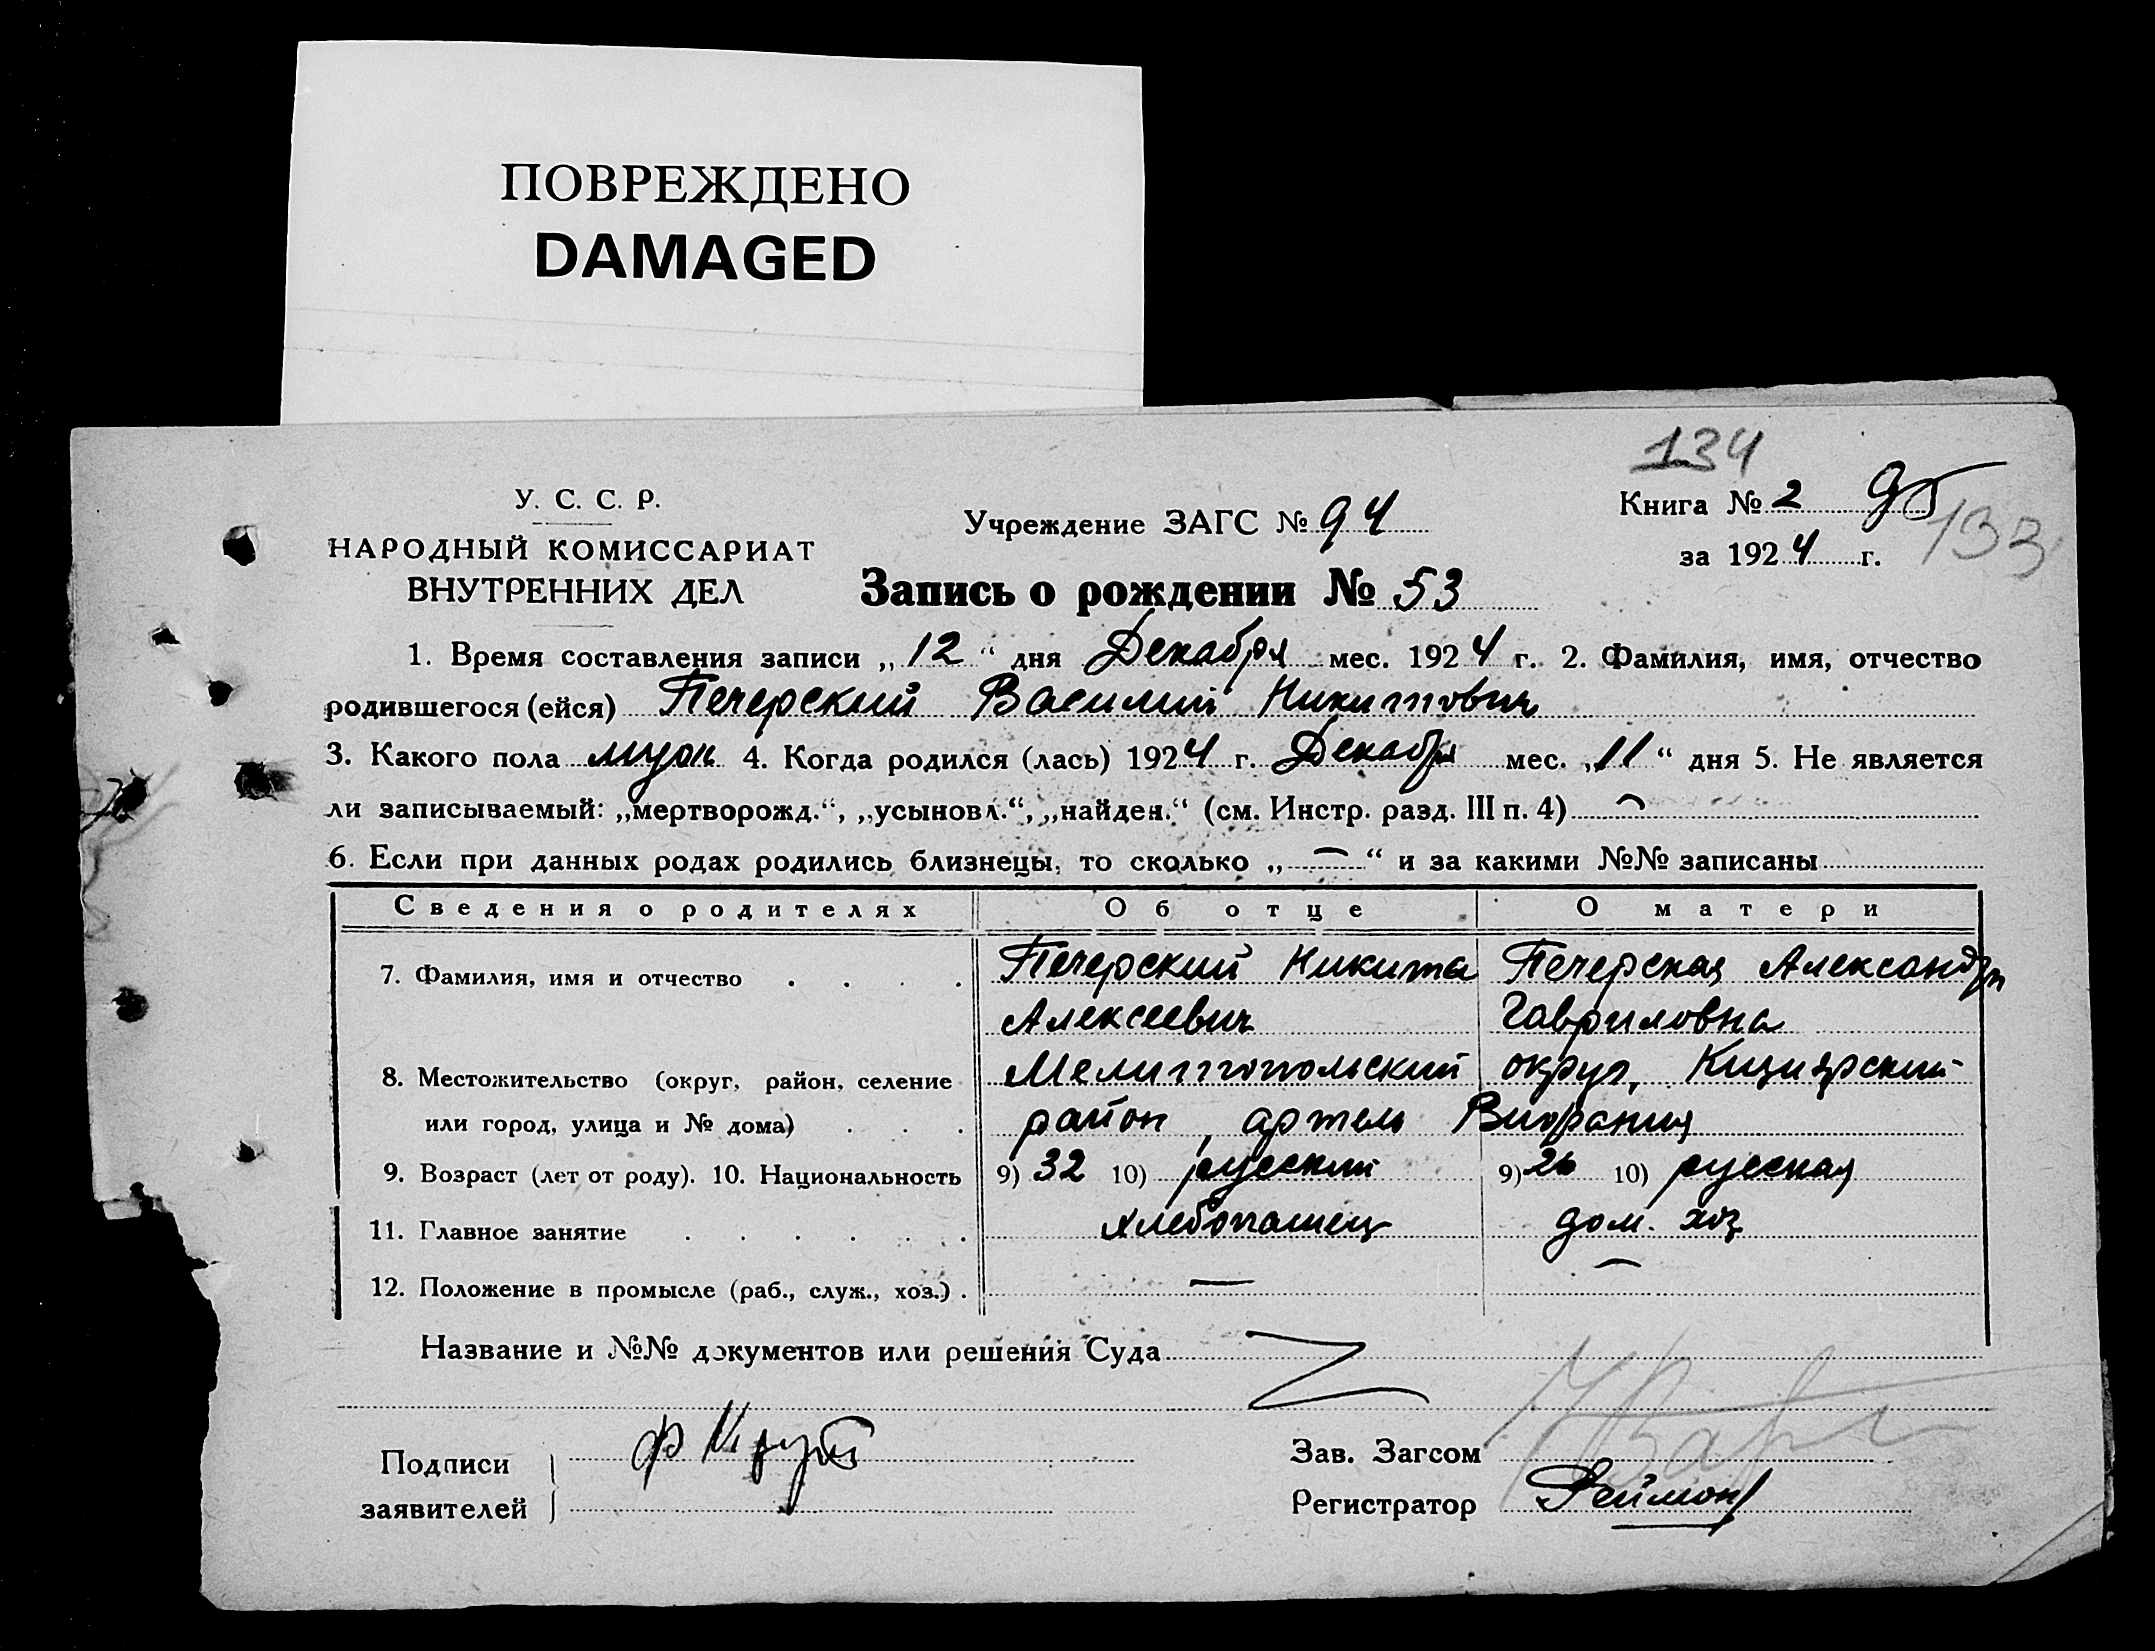 ПОВРЕЖДЕНО
DAMAGED
134
У. С. С. Р.
НАРОДНЫЙ КОМИССАРИАТ
ВНУТРЕННИХ ДЕЛ
Учреждение ЗАГС № 94
Книга № 2
за 1924 г.
133
Запись о рождении № 53
1. Время составления записи „12“ дня Декабря мес. 1924 г. 2. Фамилия, имя, отчество
родившегося (ейся) Печерский Василий Никитович
3. Какого пола муж 4. Когда родился (лась) 1924 г. Декабря мес. „11“ дня 5. Не является
ли записываемый: „мертворожд.“, „усыновл.“, „найден.“ (см. Инстр. разд. III п. 4) —
6. Если при данных родах родились близнецы, то сколько „—“ и за какими №№ записаны
Сведения о родителях Об отце О матери
7. Фамилия, имя и отчество Печерский Никита Печерская Александра
Алексеевич Гавриловна
8. Местожительство (округ, район, селение Мелитопольский округ,
или город, улица и № дома) район, артель
9. Возраст (лет от роду). 10. Национальность 9) 32 10) русский 9) 26 10) русская
11. Главное занятие хлебопашец дом. хоз
12. Положение в промысле (раб., служ., хоз.) — —
Название и №№ документов или решения Суда
Подписи
заявителей
Зав. Загсом
Регистратор